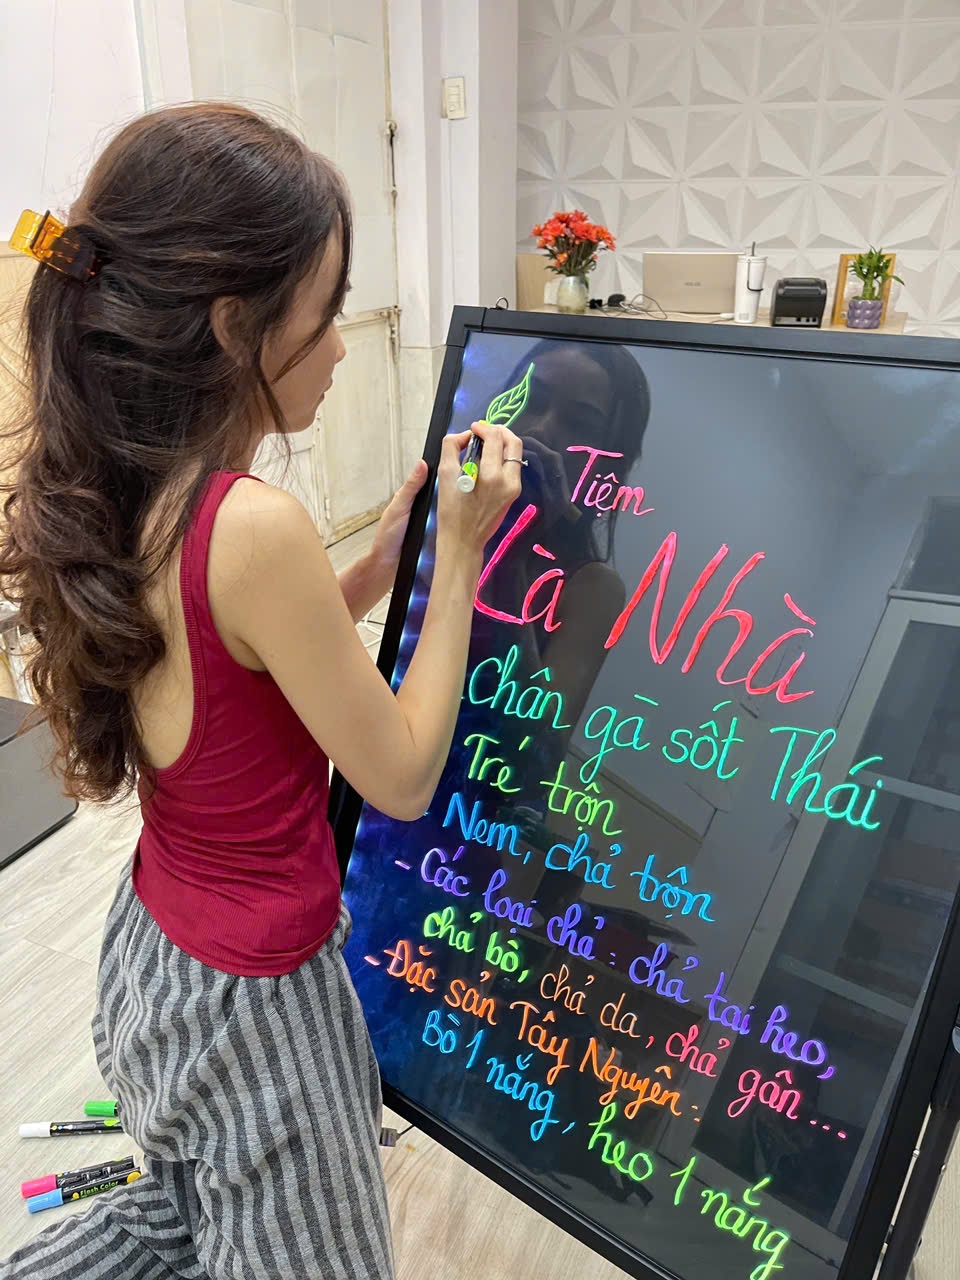 Tiệm
Là Nhà
- Chân gà sốt Thái
Tré trộn
- Nem, chả trộn
- Các loại chả : chả tai heo,
chả bò, chả da, chả gân...
- Đặc sản Tây Nguyên :
Bò 1 nắng, heo 1 nắng
ASUS
Flash Color